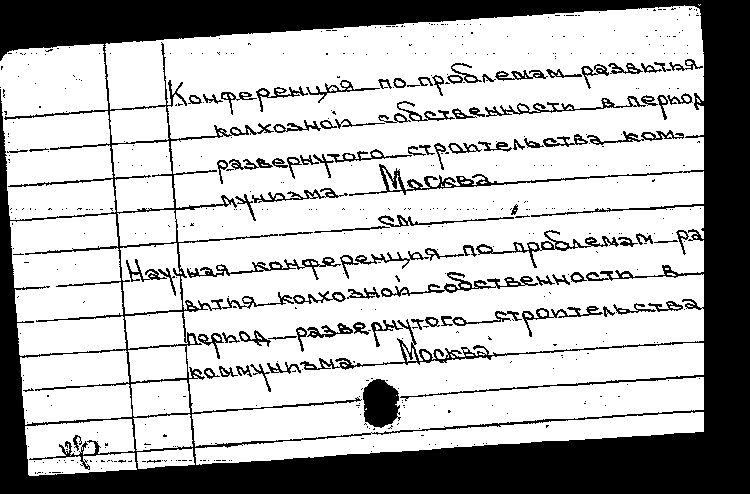 Конференция по проблемам развития
колхозной собственности в период
развернутого строительства ком-
мунизма. Москва.
см.
Научная конференция по проблемам ра
вития колхозной собственности в
период развернутого строительства
коммунизма. Москва.